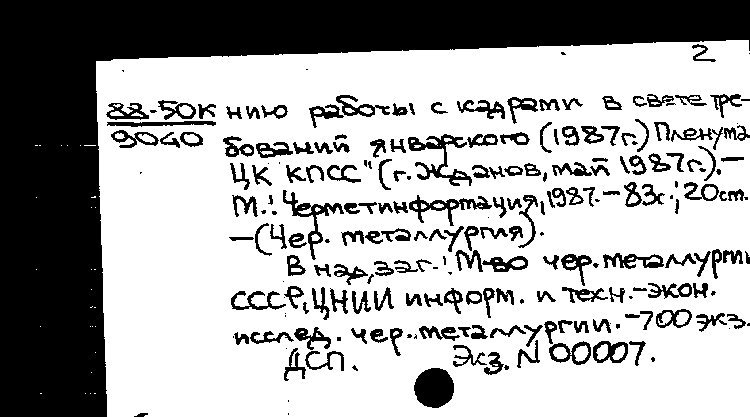 2
88-50К нию работы с кадрами в свете тре-
9040 бований январского (1987г.) Пленума
ЦК КПСС" (г. Жданов, май 1987г.).—
М.: Черметинформация, 1987.—83с.; 20 см.
—(Чер. металлургия).
В надзаг.: М-во чер. металлургии
СССР, ЦНИИ информ. и техн.-экон.
исслед. чер. металлургии.-700 экз.
ДСП. Экз. N 00007.